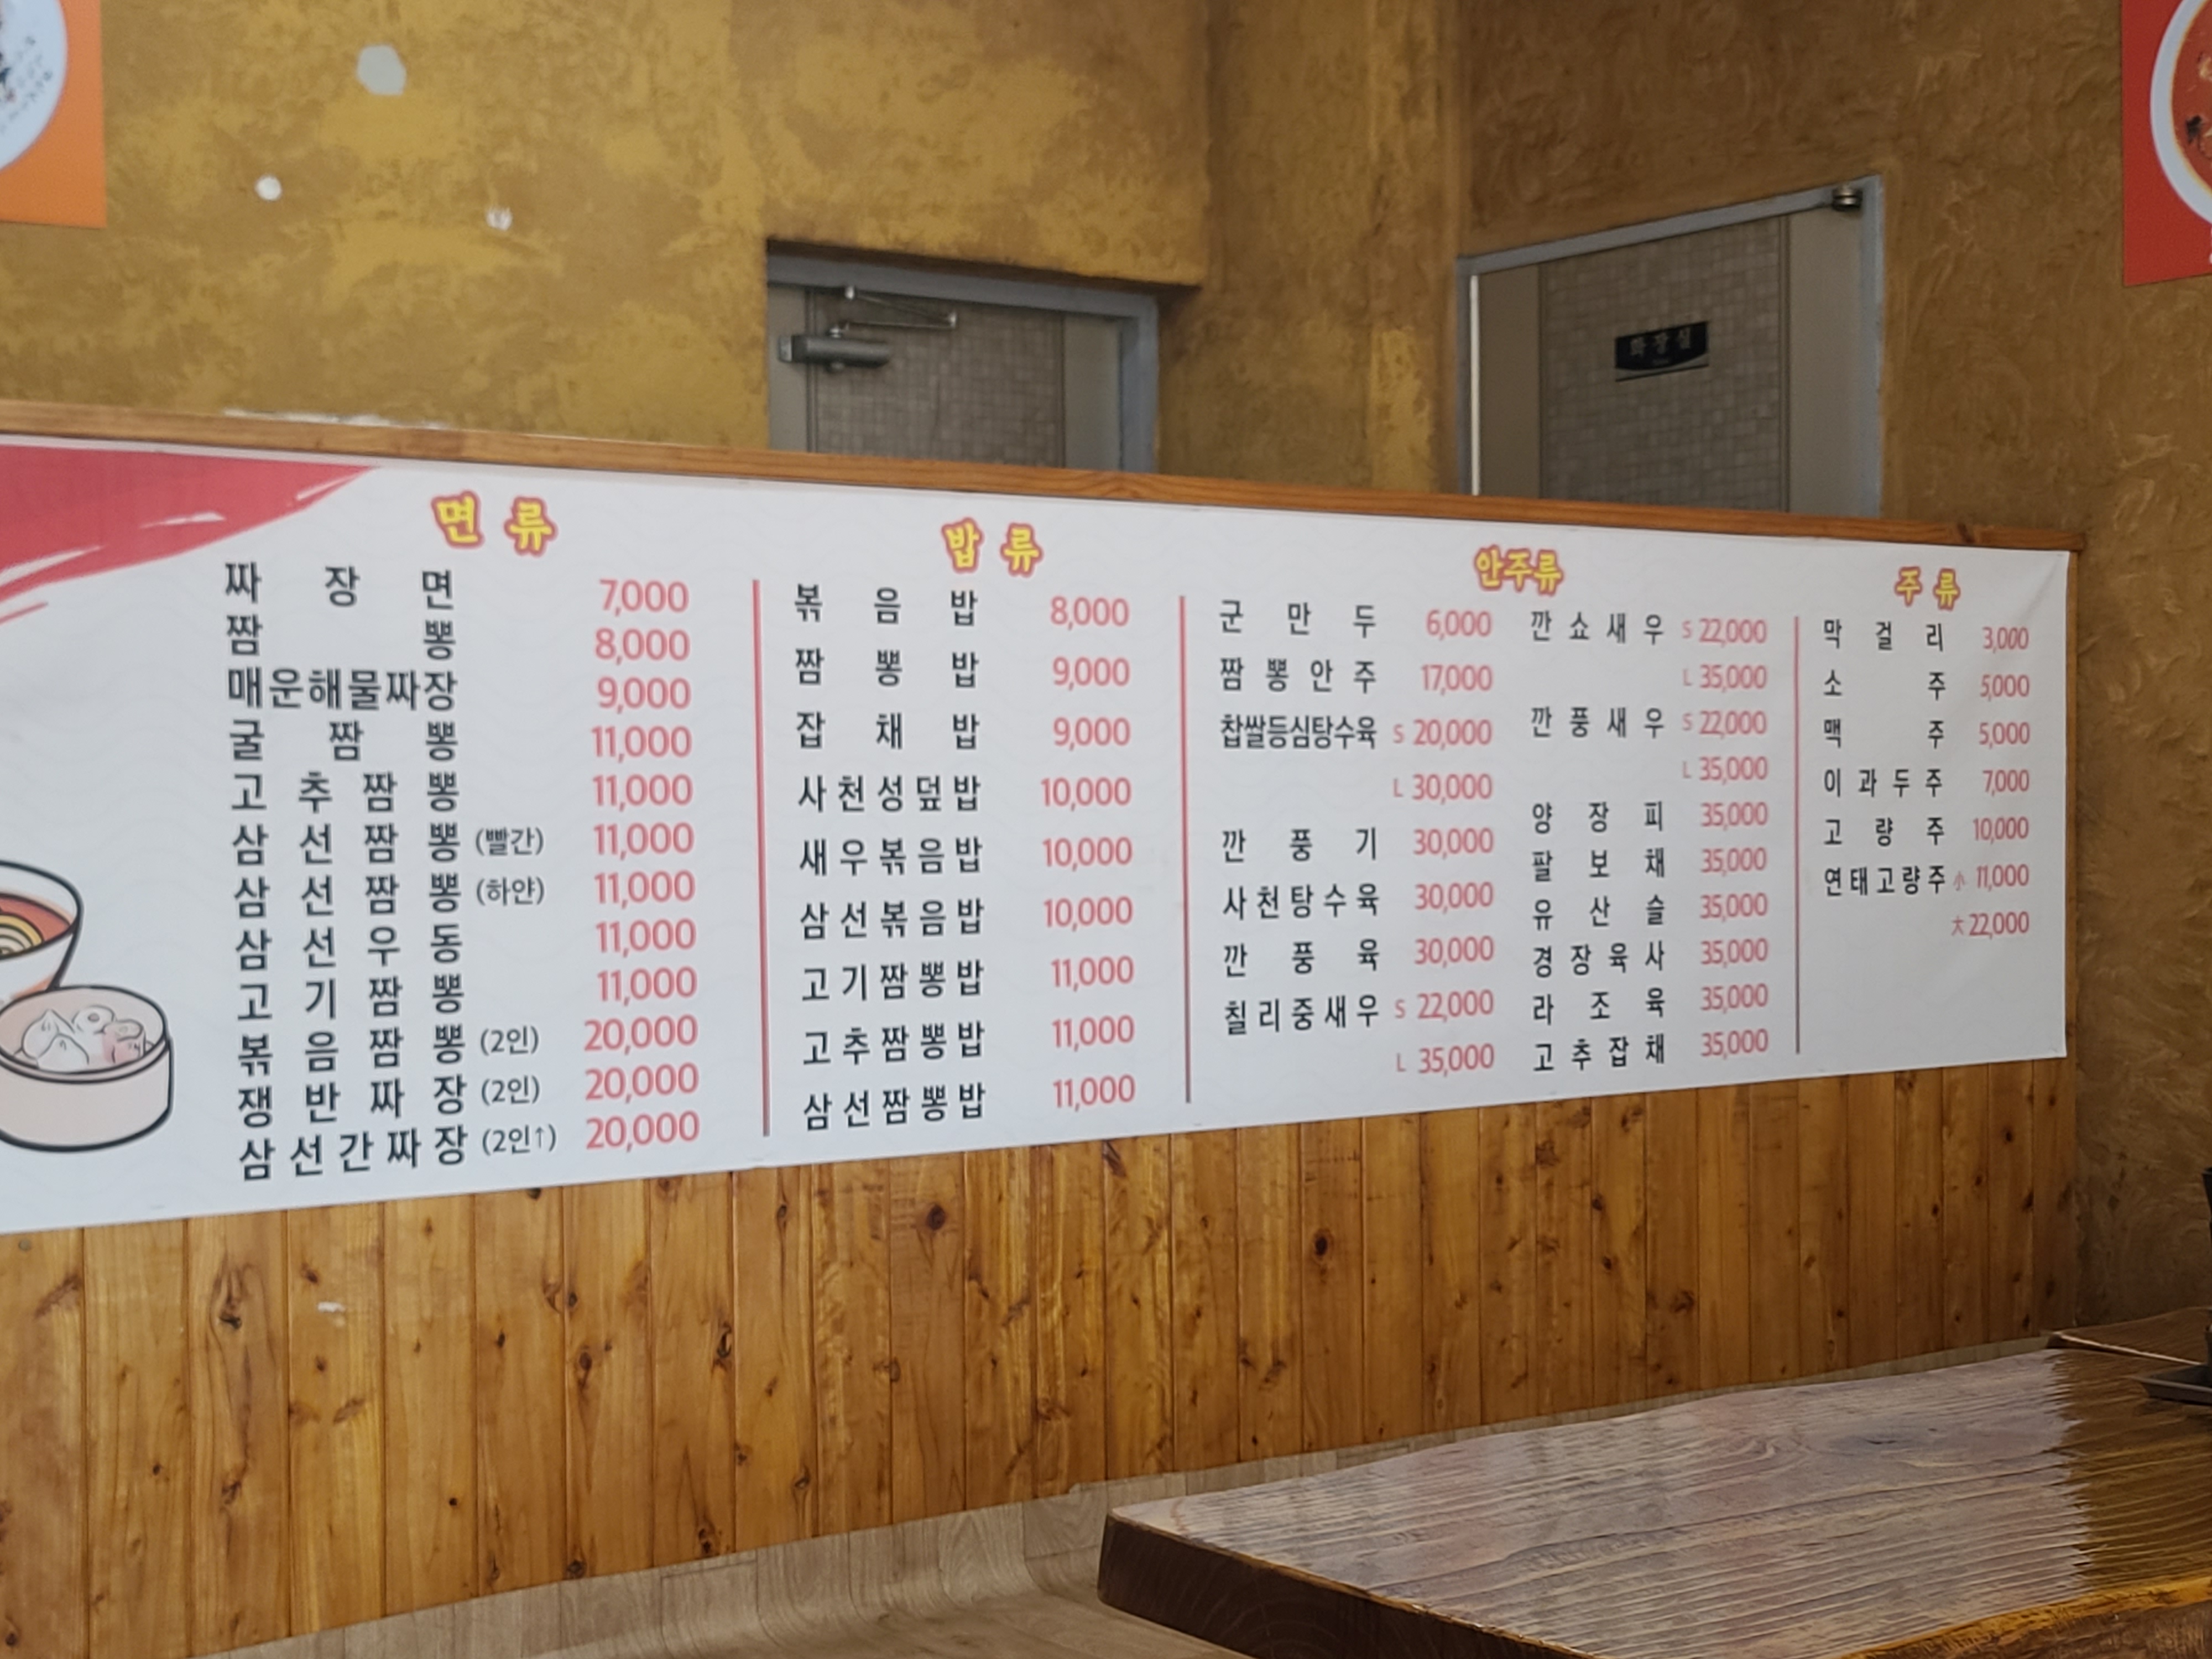 면류
짜장면 7,000
짬뽕 8,000
매운해물짜장 9,000
굴짬뽕 11,000
고추짬뽕 11,000
삼선짬뽕 (빨간) 11,000
삼선짬뽕 (하얀) 11,000
삼선우동 11,000
고기짬뽕 11,000
볶음짬뽕 (2인) 20,000
쟁반짜장 (2인) 20,000
삼선간짜장 (2인↑) 20,000
밥류
볶음밥 8,000
짬뽕밥 9,000
잡채밥 9,000
사천성덮밥 10,000
새우볶음밥 10,000
삼선볶음밥 10,000
고기짬뽕밥 11,000
고추짬뽕밥 11,000
삼선짬뽕밥 11,000
안주류
군만두 6,000
짬뽕안주 17,000
찹쌀등심탕수육 S 20,000
L 30,000
깐풍기 30,000
사천탕수육 30,000
깐풍육 30,000
칠리중새우 S 22,000
L 35,000
깐쇼새우 S 22,000
L 35,000
깐풍새우 S 22,000
L 35,000
양장피 35,000
팔보채 35,000
유산슬 35,000
경장육사 35,000
라조육 35,000
고추잡채 35,000
주류
막걸리 3,000
소주 5,000
맥주 5,000
이과두주 7,000
고량주 10,000
연태고량주 小 11,000
大 22,000
화장실